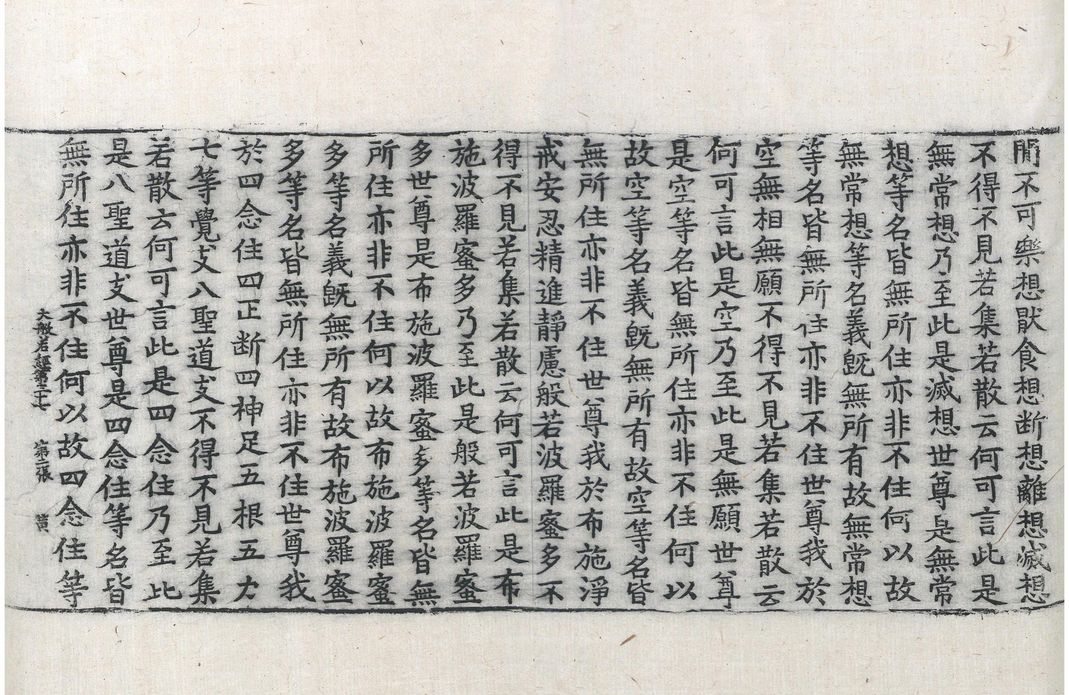 間不可樂想猒食想断想離想滅想
不得不見若集若散云何可言此是
無常想乃至此是滅想世尊是無常
想等名皆無所住亦非不住何以故
無常想等名義既無所有故無常想
等名皆無所住亦非不住世尊我於
空無相無願不得不見若集若散云
何可言此是空乃至此是無願世尊
是空等名皆無所住亦非不住何以
故空等名義既無所有故空等名皆
無所住亦非不住世尊我於布施淨
戒安忍精進靜慮般若波羅蜜多不
得不見若集若散云何可言此是布
施波羅蜜多乃至此是般若波羅蜜
多世尊是布施波羅蜜多等名皆無
所住亦非不住何以故布施波羅蜜
多等名義既無所有故布施波羅蜜
多等名皆無所住亦非不住世尊我
於四念住四正断四神足五根五力
七等覺支八聖道支不得不見若集
若散云何可言此是四念住乃至此
是八聖道支世尊是四念住等名皆
大般若經第三十七 第二張 黄
無所住亦非不住何以故四念住等